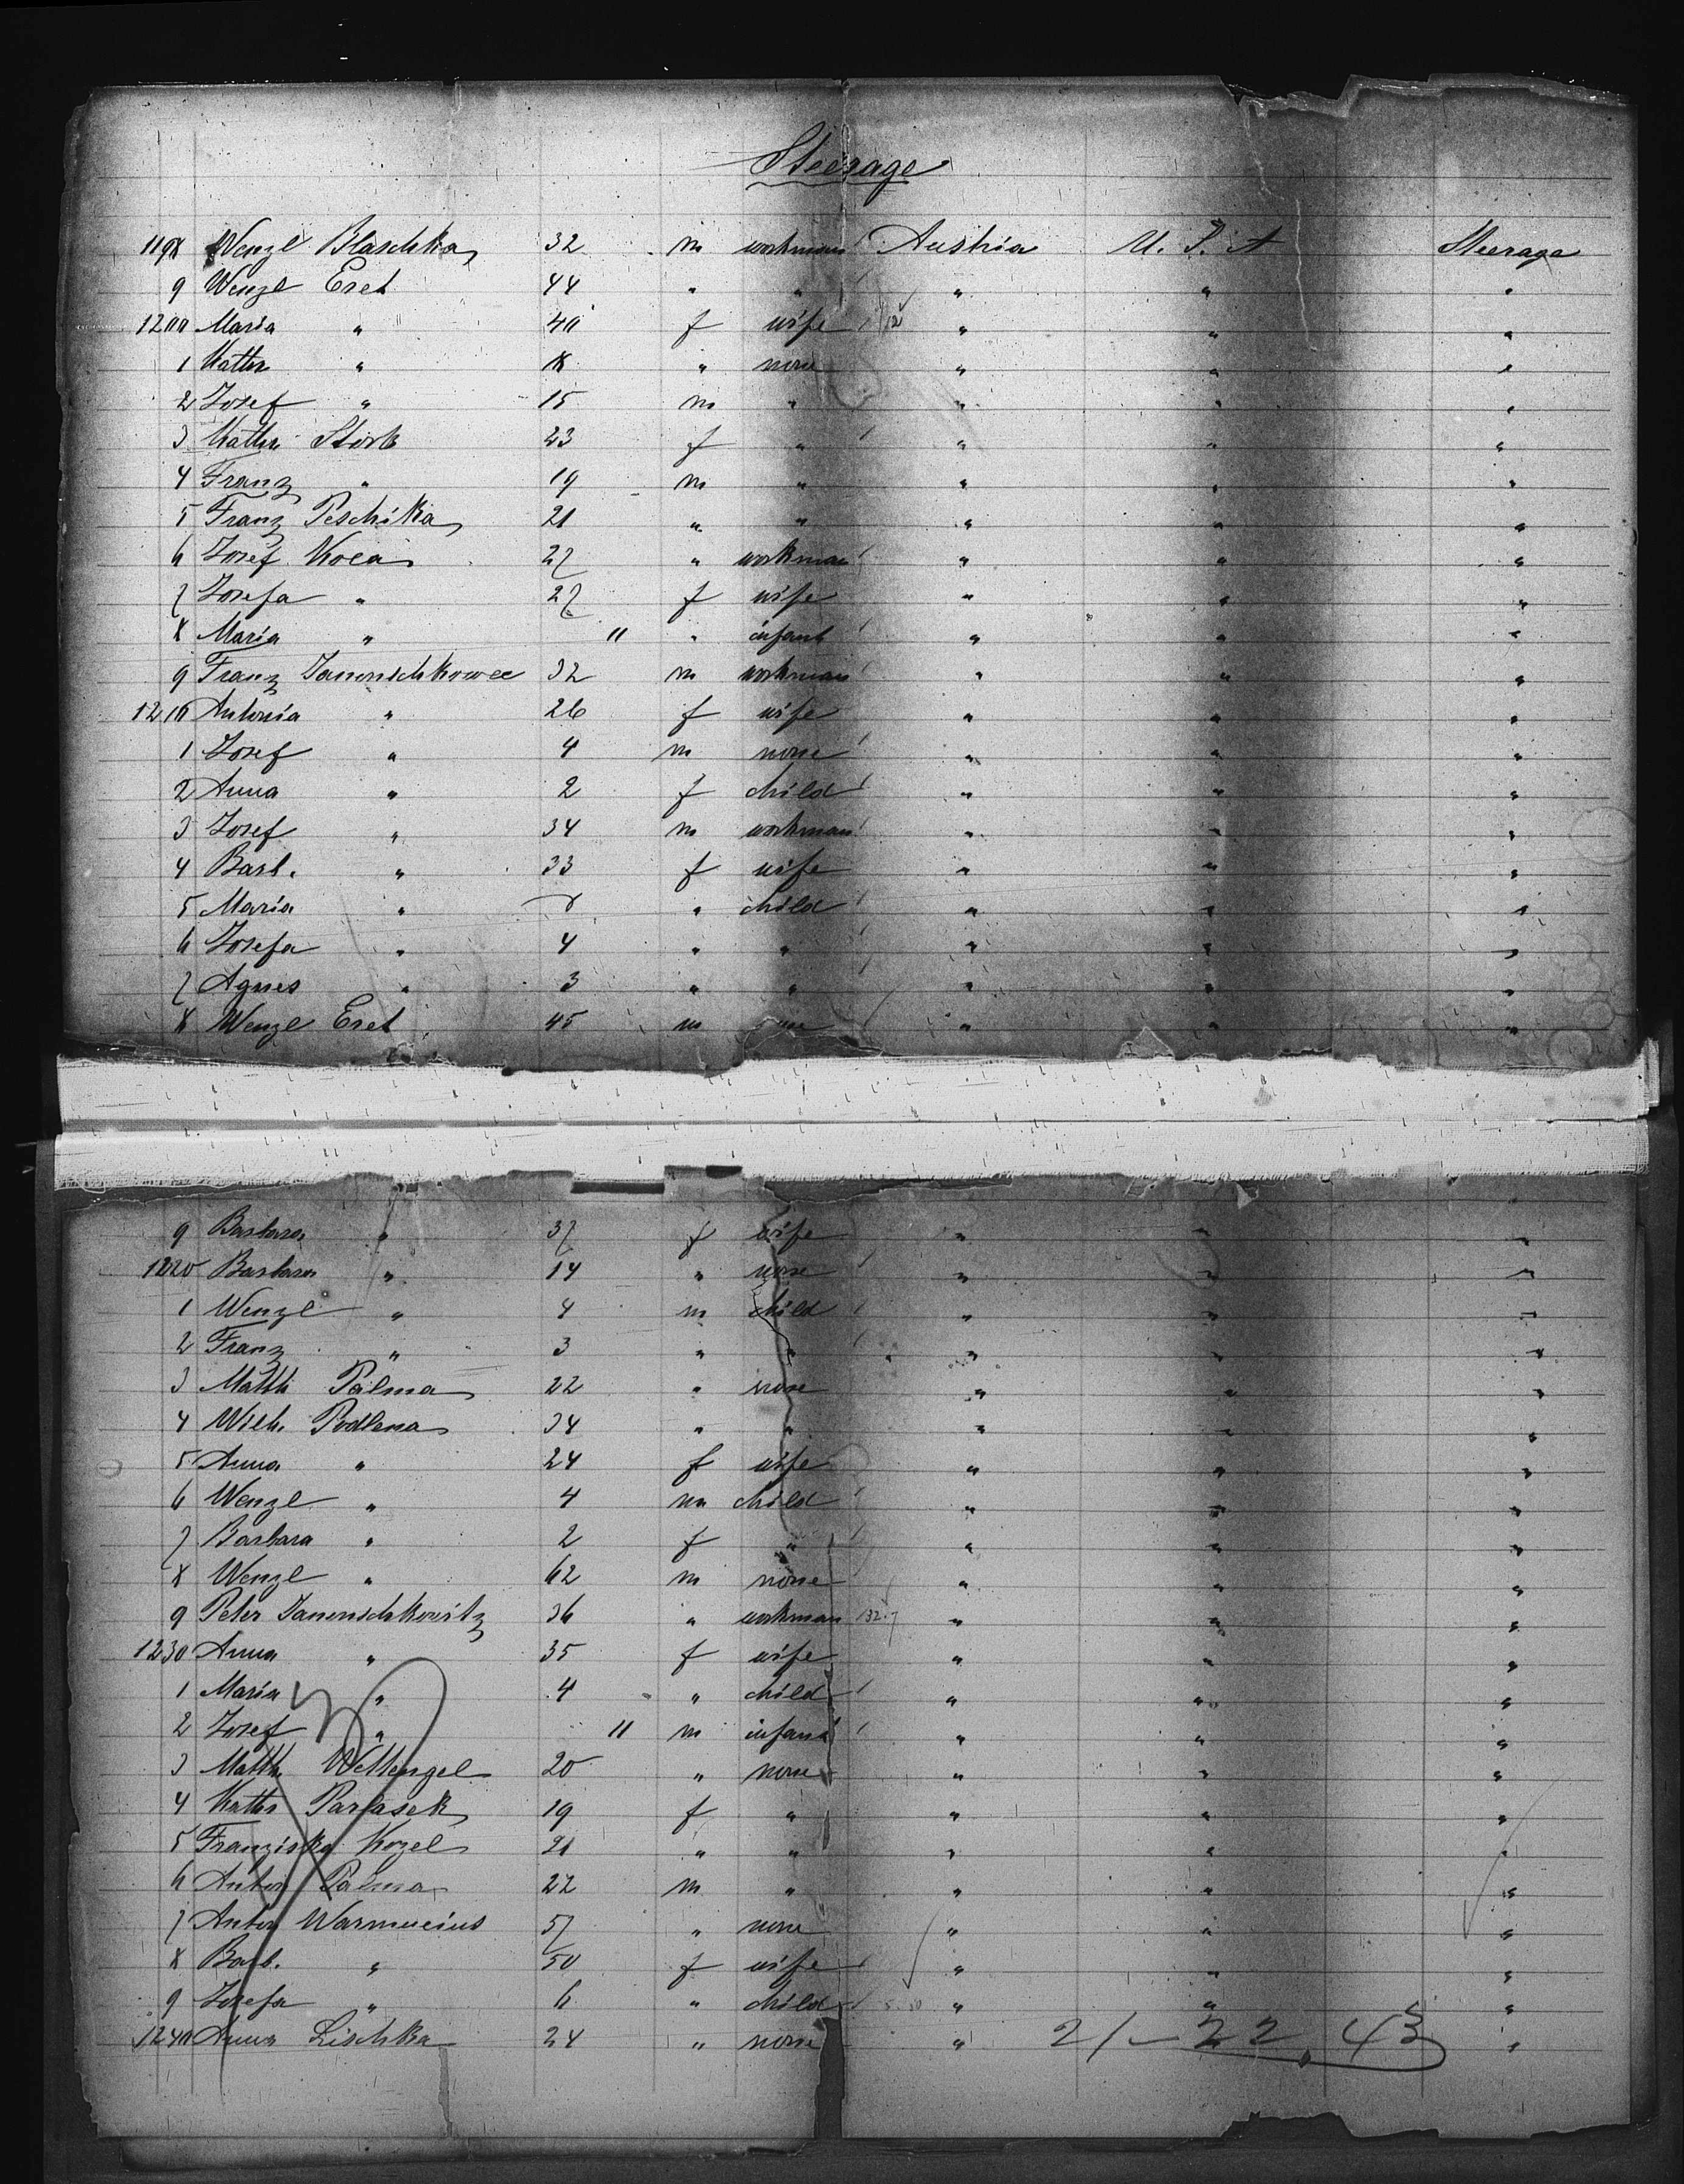 Steerage
1198 Wenzl Blaschka 32 m workman Austria U. S. A Steerage
9 Wenzl Eret 44 " " " " "
1200 Maria " 40 f wife " " "
1 Kathr " 18 " none " " "
2 Josef " 15 m " " " "
3 Kathr. Stork 23 f " " " "
4 Franz " 19 m " " " "
5 Franz Peschika 21 " " " " "
6 Josef Koca 27 " workman " " "
7 Josefa " 27 f wife " " "
8 Maria " 11 " infant " " "
9 Franz Janouschkowec 32 m workman " " "
1210 Antonia " 26 f wife " " "
1 Josef " 4 m none " " "
2 Anna " 2 f child " " "
3 Josef " 34 m workman " " "
4 Barb. " 33 f wife " " "
5 Maria " " child " " "
6 Josefa " 4 " " " " "
7 Agnes " 3 " " " " "
8 Wenzl Eret 45 m " " "
9 Barbara " 37 f wife " " "
1220 Barbara " 14 " none " " "
1 Wenzl " 4 m child " " "
2 Franz " 3 " " " " "
3 Matth Palma 22 " none " " "
4 Wilh. Podlena 34 " " " " "
5 Anna " 24 f wife " " "
6 Wenzl " 4 m child " " "
7 Barbara " 2 f " " " "
8 Wenzl " 62 m none " " "
9 Peter Janouschkowitz 36 " workman " " "
1230 Anna " 35 f wife " " "
1 Maria " 4 " child " " "
2 Josef " 11 m infant " " "
3 Matth. Wettengel 20 " none " " "
4 Kathr Parlasek 19 f " " " "
5 Franziska Kozel 21 " " " " "
6 Anton Palma 22 m " " " "
7 Anton Warmucius 57 " none " " "
8 Barb. " 50 f wife " " "
9 Josefa " 6 " child " " "
1240 Anna Lischka 24 " none " 21-22.43 "